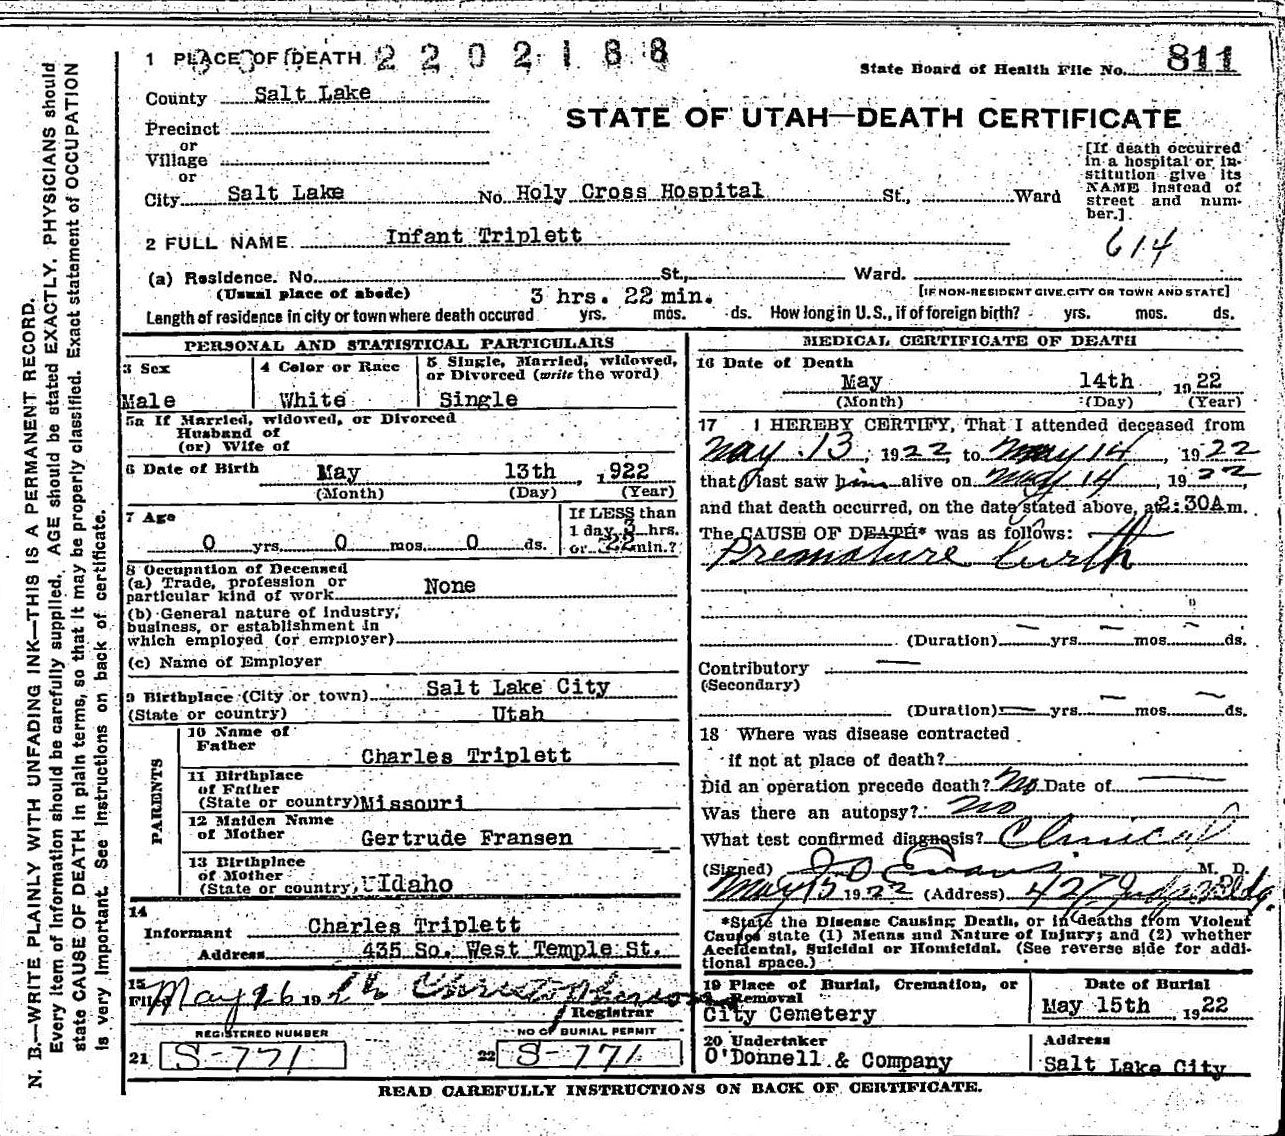 N. B.—WRITE PLAINLY WITH UNFADING INK—THIS IS A PERMANENT RECORD.
Every item of information should be carefully supplied. AGE should be stated EXACTLY. PHYSICIANS should
state CAUSE OF DEATH in plain terms, so that it may be properly classified. Exact statement of OCCUPATION
is very important. See instructions on back of certificate.
1 PLACE OF DEATH 2202188
State Board of Health File No. 811
County Salt Lake
STATE OF UTAH—DEATH CERTIFICATE
Precinct
or
Village
or
City Salt Lake No. Holy Cross Hospital St., Ward
[If death occurred
in a hospital or in-
stitution give its
NAME instead of
street and num-
ber.]
2 FULL NAME Infant Triplett
614
(a) Residence. No. St., Ward.
(Usual place of abode) [IF NON-RESIDENT GIVE CITY OR TOWN AND STATE]
3 hrs. 22 min.
Length of residence in city or town where death occured yrs. mos. ds. How long in U.S., if of foreign birth? yrs. mos. ds.
PERSONAL AND STATISTICAL PARTICULARS
3 Sex
Male
4 Color or Race
White
5 Single, Married, widowed,
or Divorced (write the word)
Single
5a If Married, widowed, or Divorced
Husband of
(or) Wife of
6 Date of Birth May 13th, 1922
(Month) (Day) (Year)
7 Age
0 yrs. 0 mos. 0 ds.
If LESS than
1 day, 3 hrs.
or 22 min.?
8 Occupation of Deceased
(a) Trade, profession or
particular kind of work None
(b) General nature of industry,
business, or establishment in
which employed (or employer)
(c) Name of Employer
9 Birthplace (City or town) Salt Lake City
(State or country) Utah
PARENTS
10 Name of
Father Charles Triplett
11 Birthplace
of Father
(State or country) Missouri
12 Maiden Name
of Mother Gertrude Fransen
13 Birthplace
of Mother
(State or country, Idaho
14
Informant Charles Triplett
Address 435 So. West Temple St.
15
Filed May 16 19 Christopherson
Registrar
REGISTERED NUMBER NO OF BURIAL PERMIT
21 S-771 22 S-771
MEDICAL CERTIFICATE OF DEATH
16 Date of Death
May 14th 1922
(Month) (Day) (Year)
17 I HEREBY CERTIFY, That I attended deceased from
May 13, 1922, to May 14, 1922
that I last saw him alive on May 14, 1922,
and that death occurred, on the date stated above, at 2:30A m.
The CAUSE OF DEATH* was as follows:
Premature birth
(Duration) yrs. mos. ds.
Contributory
(Secondary)
(Duration) yrs. mos. ds.
18 Where was disease contracted
if not at place of death?
Did an operation precede death? No Date of
Was there an autopsy? No
What test confirmed diagnosis? Clinical
(Signed) J O Evans M. D.
May 15 1922 (Address) 427 Judge Bldg.
*State the Disease Causing Death, or in deaths from Violent
Causes state (1) Means and Nature of Injury; and (2) whether
Accidental, Suicidal or Homicidal. (See reverse side for addi-
tional space.)
19 Place of Burial, Cremation, or
Removal
City Cemetery
Date of Burial
May 15th 1922
20 Undertaker
O'Donnell & Company
Address
Salt Lake City
READ CAREFULLY INSTRUCTIONS ON BACK OF CERTIFICATE.